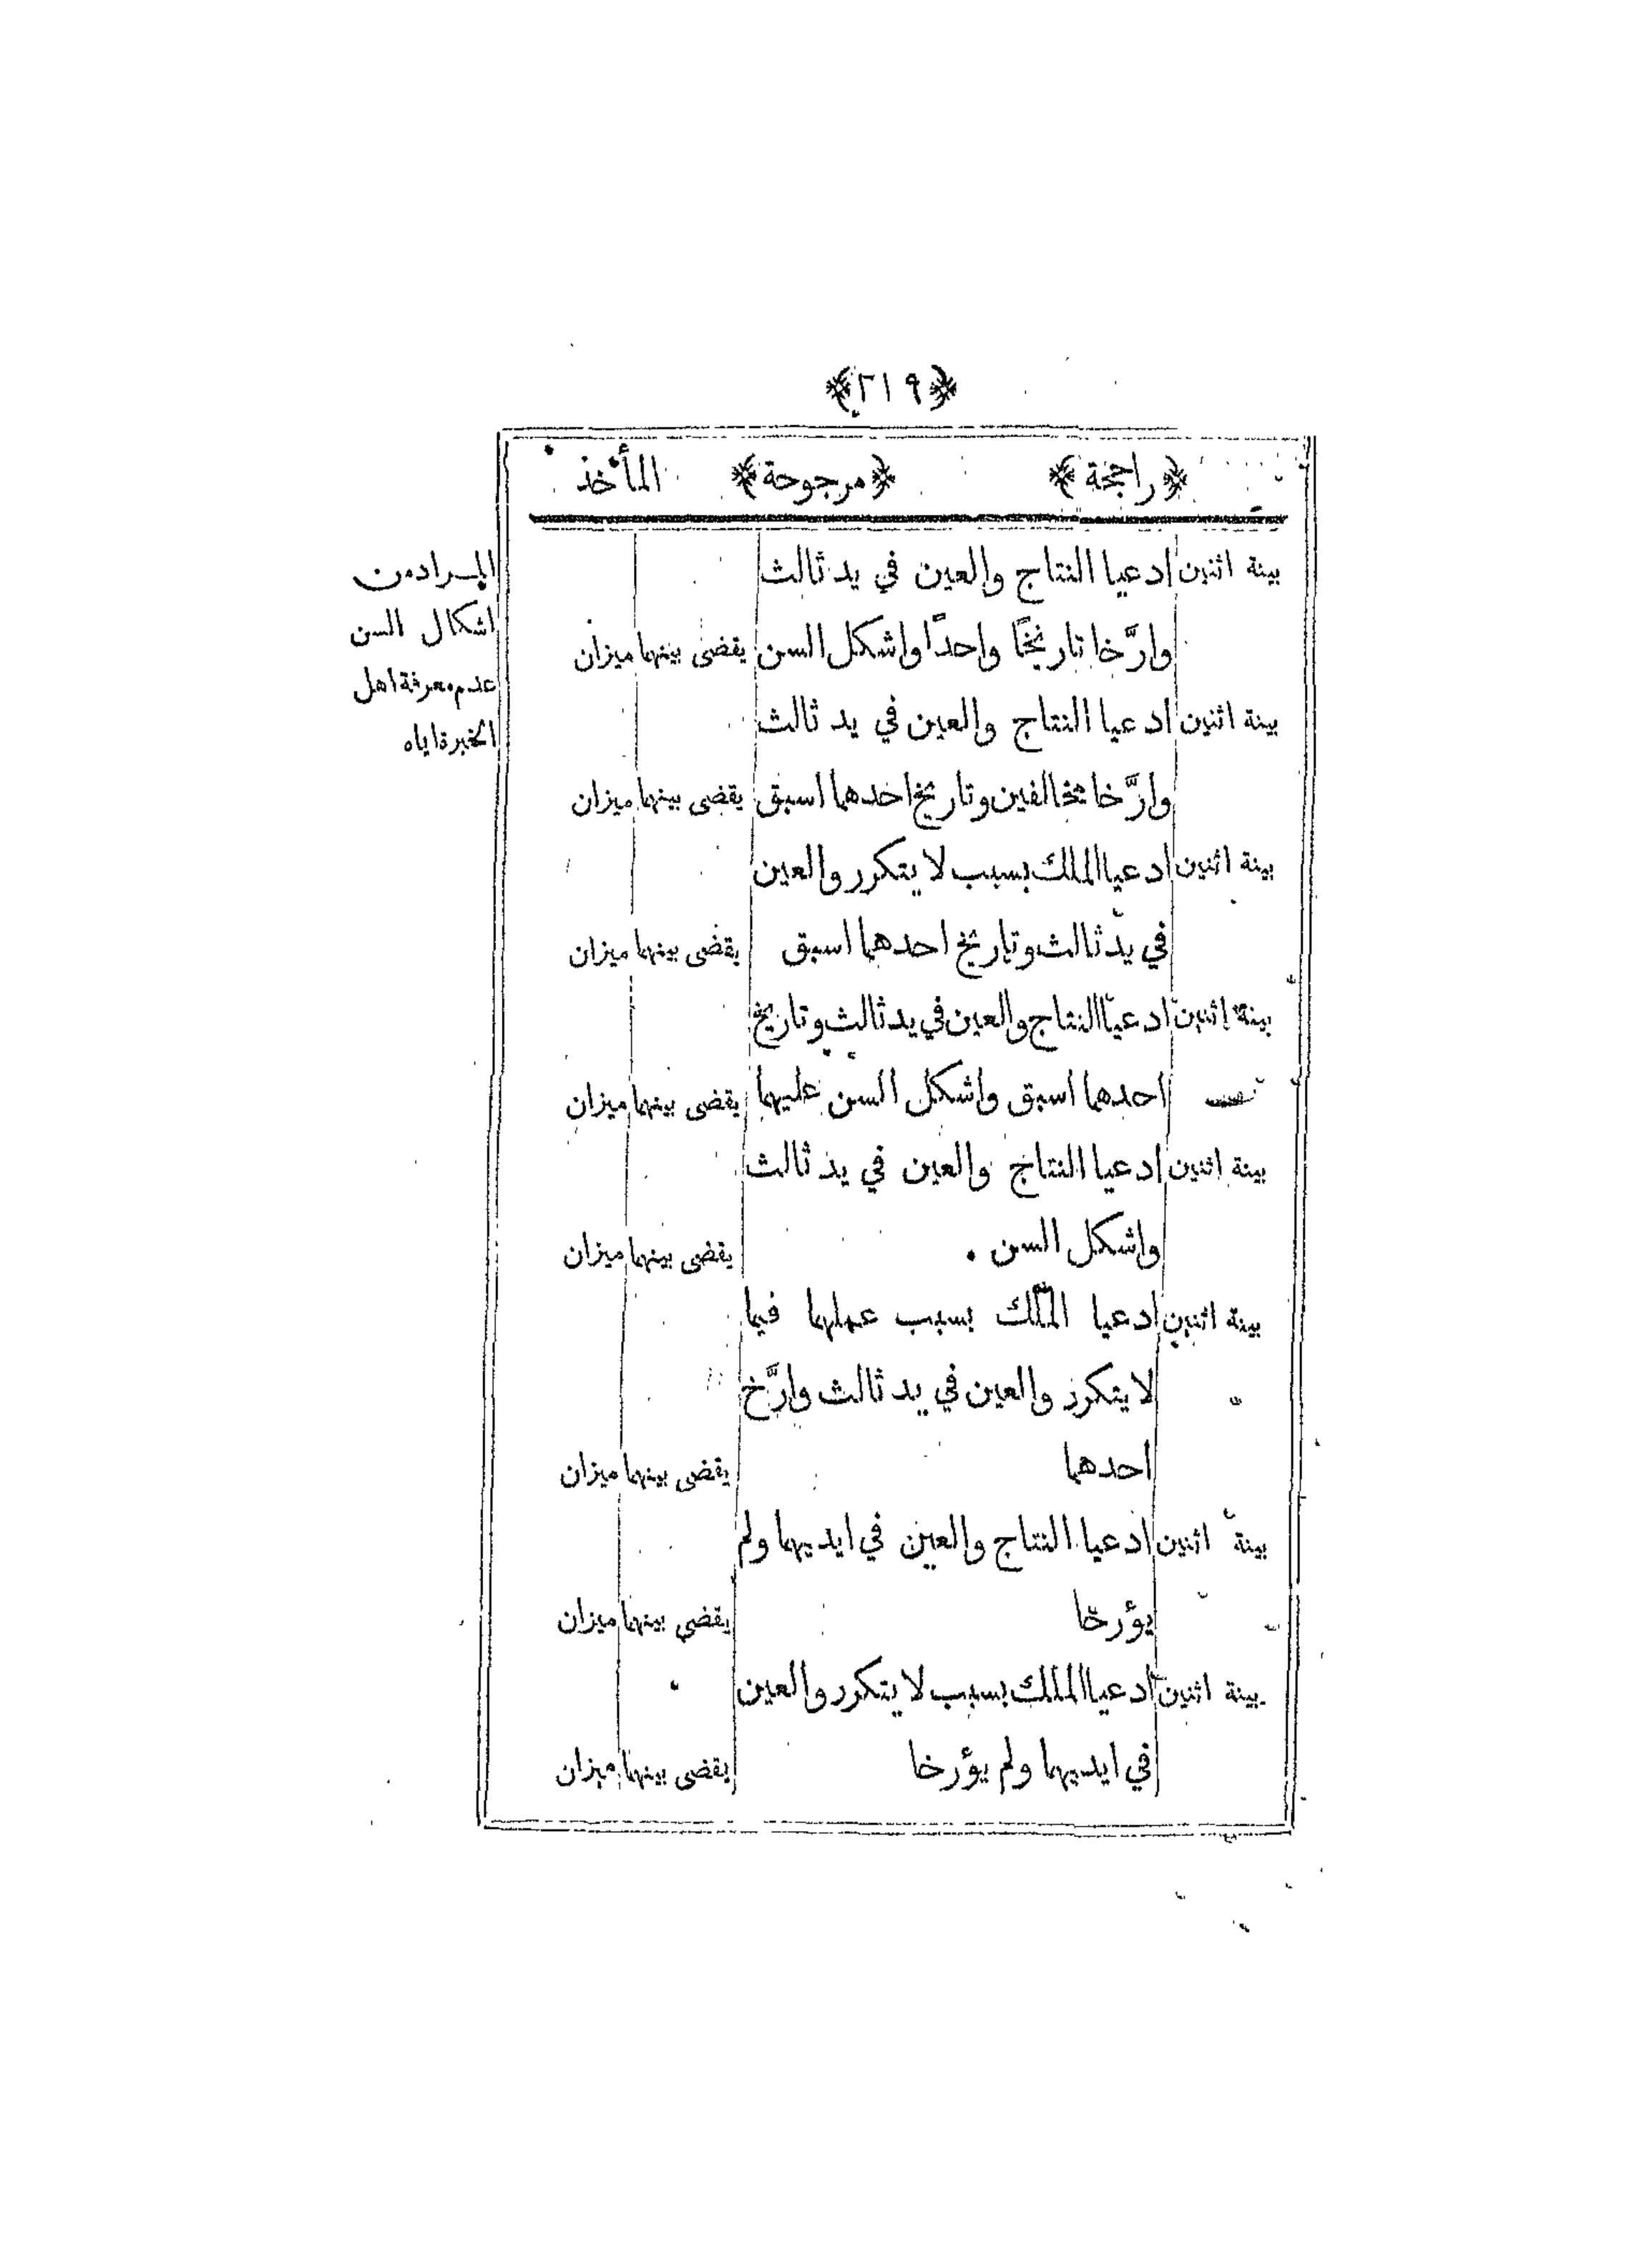 ﴿٢١٩﴾
﴿راجحة﴾ ﴿مرجوحة﴾ المأخذ
بينة اثنين ادعيا النتاج والعين في يد ثالث
وارَّخا تاريخًا واحدًا واشكل السن يقضى بينهما ميزان
بينة اثنين ادعيا النتاج والعين في يد ثالث
وارَّخا مخالفين وتاريخ احدهما اسبق يقضى بينهما ميزان
بينة اثنين ادعيا الملك بسبب لا يتكرر والعين
في يد ثالث وتاريخ احدهما اسبق يقضى بينهما ميزان
بينة اثنين ادعيا النتاج والعين في يد ثالث وتاريخ
احدهما اسبق واشكل السن عليهما يقضى بينهما ميزان
بينة اثنين ادعيا النتاج والعين في يد ثالث
واشكل السن . يقضى بينهما ميزان
بينة اثنين ادعيا الملك بسبب عملهما فيما
لا يتكرر والعين في يد ثالث وارَّخ
احدهما يقضى بينهما ميزان
بينة اثنين ادعيا النتاج والعين في ايديهما ولم
يؤرخا يقضى بينهما ميزان
بينة اثنين ادعيا الملك بسبب لا يتكرر والعين
في ايديهما ولم يؤرخا يقضى بينهما ميزان
المراد من
اشكال السن
عدم معرفة اهل
الخبرة اياه